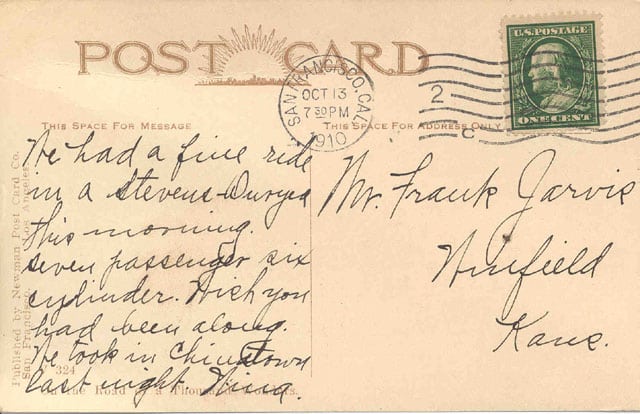 POST CARD
SAN FRANCISCO, CAL.
OCT 13
7 30 PM
1910
2
C
U.S. POSTAGE
ONE CENT
THIS SPACE FOR MESSAGE
THIS SPACE FOR ADDRESS ONLY
We had a fine ride
in a Stevens-Duryea
this morning.
Seven passenger six
cylinder. Wish you
had been along.
We took in Chinatown
last night. Nina.
Mr. Frank Jarvis
Winfield
Kans.
Published by Newman Post Card Co.
San Francisco Los Angeles
324
On the Road of a Thousand Wonders.